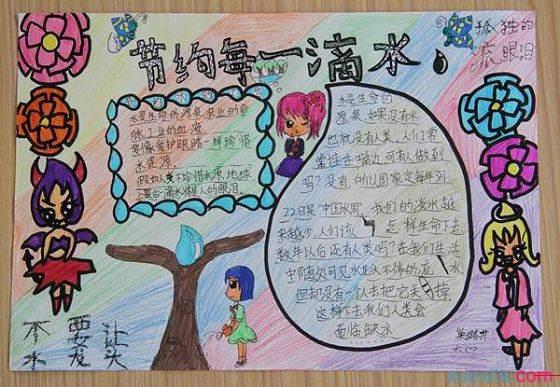 节约每一滴水
孤独的
流眼泪
水是生命的源泉农业的命
脉工业的血液
要像爱护眼睛一样珍惜
水资源
假如人类不珍惜水源,地球
上最后一滴水将是人的眼泪。
水是生命的
源泉,如果没有水
也就没有人类。人们常
常挂在嘴边可有人做到
吗?没有,所以国家定每年3月
22日是"中国水周",我们的淡水越
来越少,人们该 怎样生命下去
数年以后还有人类吗?在我们生活
中随处可见水龙头不停的流 水
但却没有一 人去把它关 掉
这样下去我们人类会
面临缺水
不要让
水龙头
六(一)